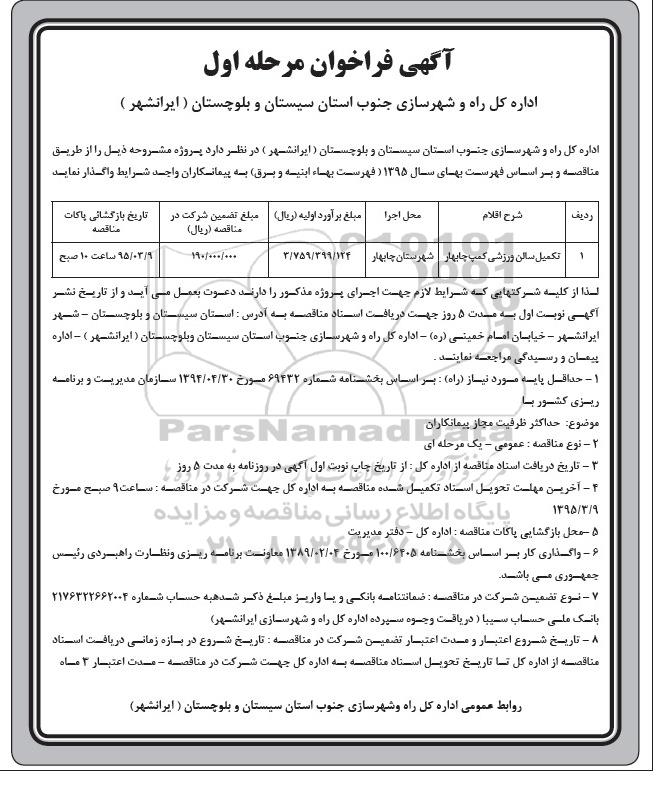 آگهی فراخوان مرحله اول
اداره کل راه و شهرسازی جنوب استان سیستان و بلوچستان ( ایرانشهر )
اداره کل راه و شهرسازی جنوب استان سیستان و بلوچستان ( ایرانشهر ) در نظر دارد پروژه مشروحه ذیل را از طریق
مناقصه و بر اساس فهرست بهای سال ۱۳۹۵ ( فهرست بهاء ابنیه و برق) به پیمانکاران واجد شرایط واگذار نماید
ردیف شرح اقلام محل اجرا مبلغ برآورد اولیه (ریال) مبلغ تضمین شرکت در مناقصه (ریال) تاریخ بازگشائی پاکات مناقصه
۱ تکمیل سالن ورزشی کمپ چابهار شهرستان چابهار ۳/۷۵۹/۳۹۹/۱۲۴ ۱۹۰/۰۰۰/۰۰۰ ۹۵/۰۳/۹ ساعت ۱۰ صبح
لذا از کلیه شرکتهایی که شرایط لازم جهت اجرای پروژه مذکور را دارند دعوت بعمل می آید و از تاریخ نشر
آگهی نوبت اول به مدت ۵ روز جهت دریافت اسناد مناقصه به آدرس : استان سیستان و بلوچستان – شهر
ایرانشهر – خیابان امام خمینی (ره) – اداره کل راه و شهرسازی جنوب استان سیستان وبلوچستان ( ایرانشهر ) – اداره
پیمان و رسیدگی مراجعه نمایند .
۱ – حداقل پایه مورد نیاز (راه) : بر اساس بخشنامه شماره ۶۹۴۳۲ مورخ ۱۳۹۴/۰۴/۳۰ سازمان مدیریت و برنامه
ریزی کشور با
موضوع: حداکثر ظرفیت مجاز پیمانکاران
۲ – نوع مناقصه : عمومی – یک مرحله ای
۳ – تاریخ دریافت اسناد مناقصه از اداره کل : از تاریخ چاپ نوبت اول آگهی در روزنامه به مدت ۵ روز
۴ – آخرین مهلت تحویل اسناد تکمیل شده مناقصه به اداره کل جهت شرکت در مناقصه : ساعت۹ صبح مورخ
۱۳۹۵/۳/۹
۵ –محل بازگشایی پاکات مناقصه : اداره کل – دفتر مدیریت
۶ – واگذاری کار بر اساس بخشنامه ۱۰۰/۶۴۰۵ مورخ ۱۳۸۹/۰۲/۰۴ معاونت برنامه ریزی ونظارت راهبردی رئیس
جمهوری می باشد.
۷ – نوع تضمین شرکت در مناقصه : ضمانتنامه بانکی و یا واریز مبلغ ذکر شدهبه حساب شماره ۲۱۷۶۳۲۲۶۶۲۰۰۴
بانک ملی حساب سیبا ( دریاقت وجوه سپرده اداره کل راه و شهرسازی ایرانشهر)
۸ – تاریخ شروع اعتبار و مدت اعتبار تضمین شرکت در مناقصه : تاریخ شروع در بازه زمانی دریافت اسناد
مناقصه از اداره کل تا تاریخ تحویل اسناد مناقصه به اداره کل جهت شرکت در مناقصه – مدت اعتبار ۳ ماه
روابط عمومی اداره کل راه وشهرسازی جنوب استان سیستان و بلوچستان ( ایرانشهر)
ParsNamadData
پایگاه اطلاع رسانی مناقصه و مزایده